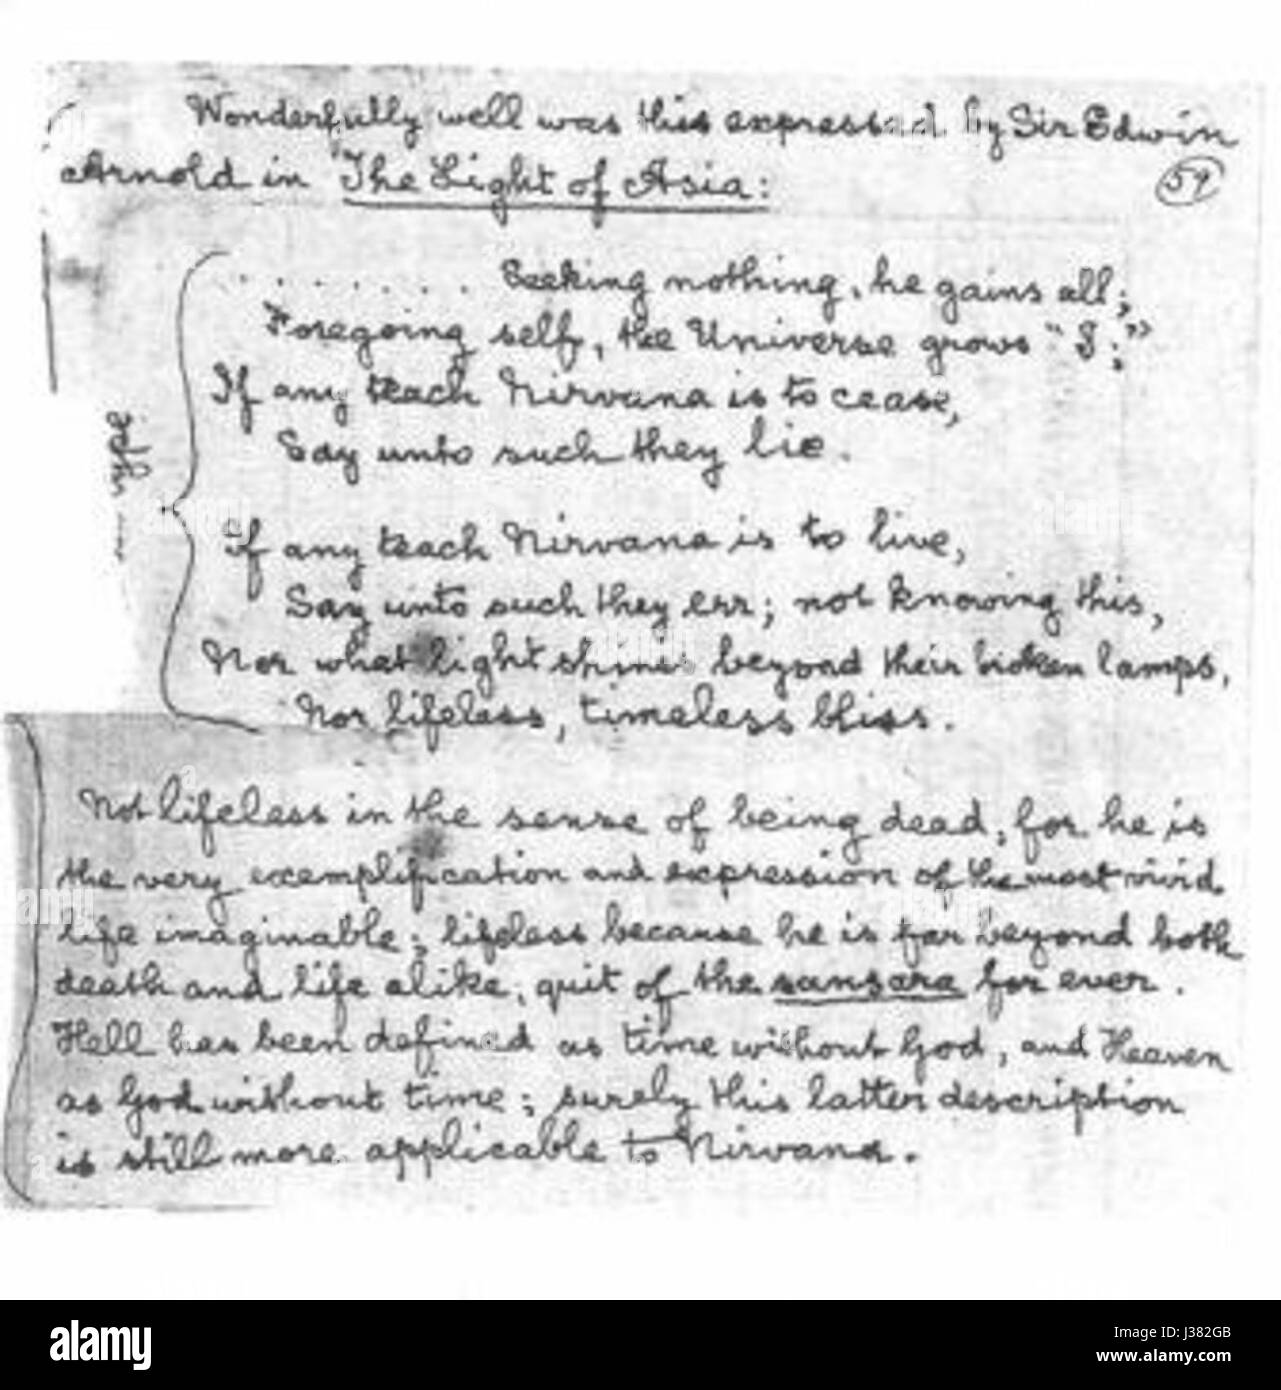 Wonderfully well was this expressed by Sir Edwin
Arnold in The Light of Asia:
59
. . . . . . . . Seeking nothing, he gains all;
Foregoing self, the Universe grows "I;"
If any teach Nirvana is to cease,
Say unto such they lie.
type
If any teach Nirvana is to live,
Say unto such they err; not knowing this,
Nor what light shines beyond their broken lamps,
Nor lifeless, timeless bliss.
Not lifeless in the sense of being dead, for he is
the very exemplification and expression of the most vivid
life imaginable; lifeless because he is far beyond both
death and life alike, quit of the sansara for ever.
Hell has been defined as time without God, and Heaven
as God without time; surely this latter description
is still more applicable to Nirvana.
alamy
Image ID: J382GB
www.alamy.com